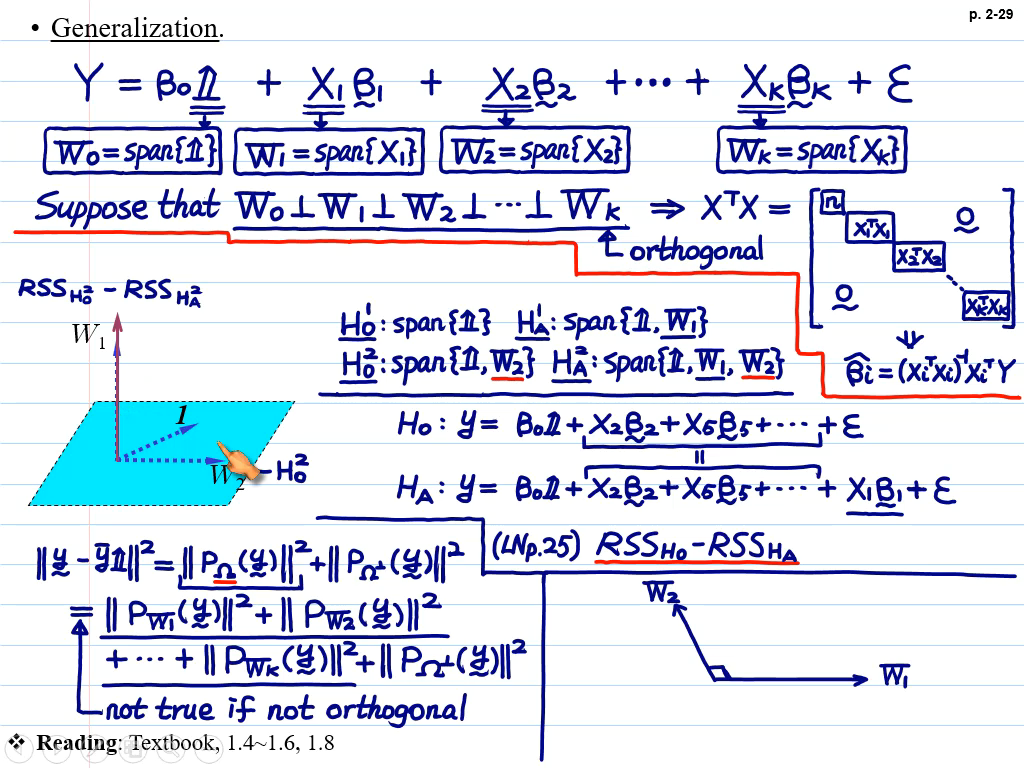 p. 2-29
• Generalization.
Y = β₀𝟙 + X₁β₁ + X₂β₂ + ⋯ + Xₖβₖ + ε
W₀=span{𝟙} W₁=span{X₁} W₂=span{X₂} Wₖ=span{Xₖ}
Suppose that W₀⊥W₁⊥W₂⊥⋯⊥Wₖ ⇒ XᵀX = [n X₁ᵀX₁ X₂ᵀX₂ ⋱ XₖᵀXₖ 0 0]
orthogonal
⇓
β̂ᵢ=(XᵢᵀXᵢ)⁻¹XᵢᵀY
RSS_{H₀²} − RSS_{H_A²}
W₁
1
W₂ H₀²
H₀¹: span{𝟙} H_A¹: span{𝟙, W₁}
H₀²: span{𝟙, W₂} H_A²: span{𝟙, W₁, W₂}
H₀: y = β₀𝟙+X₂β₂+X₅β₅+⋯+ε
=
H_A: y = β₀𝟙+X₂β₂+X₅β₅+⋯+X₁β₁+ε
(LNp.25) RSS_{H₀}−RSS_{H_A}
‖y−ȳ𝟙‖²=‖P_Ω(y)‖²+‖P_{Ω⊥}(y)‖²
=‖P_{W₁}(y)‖²+‖P_{W₂}(y)‖²
+⋯+‖P_{Wₖ}(y)‖²+‖P_{Ω⊥}(y)‖²
not true if not orthogonal
W₂
W₁
❖ Reading: Textbook, 1.4~1.6, 1.8